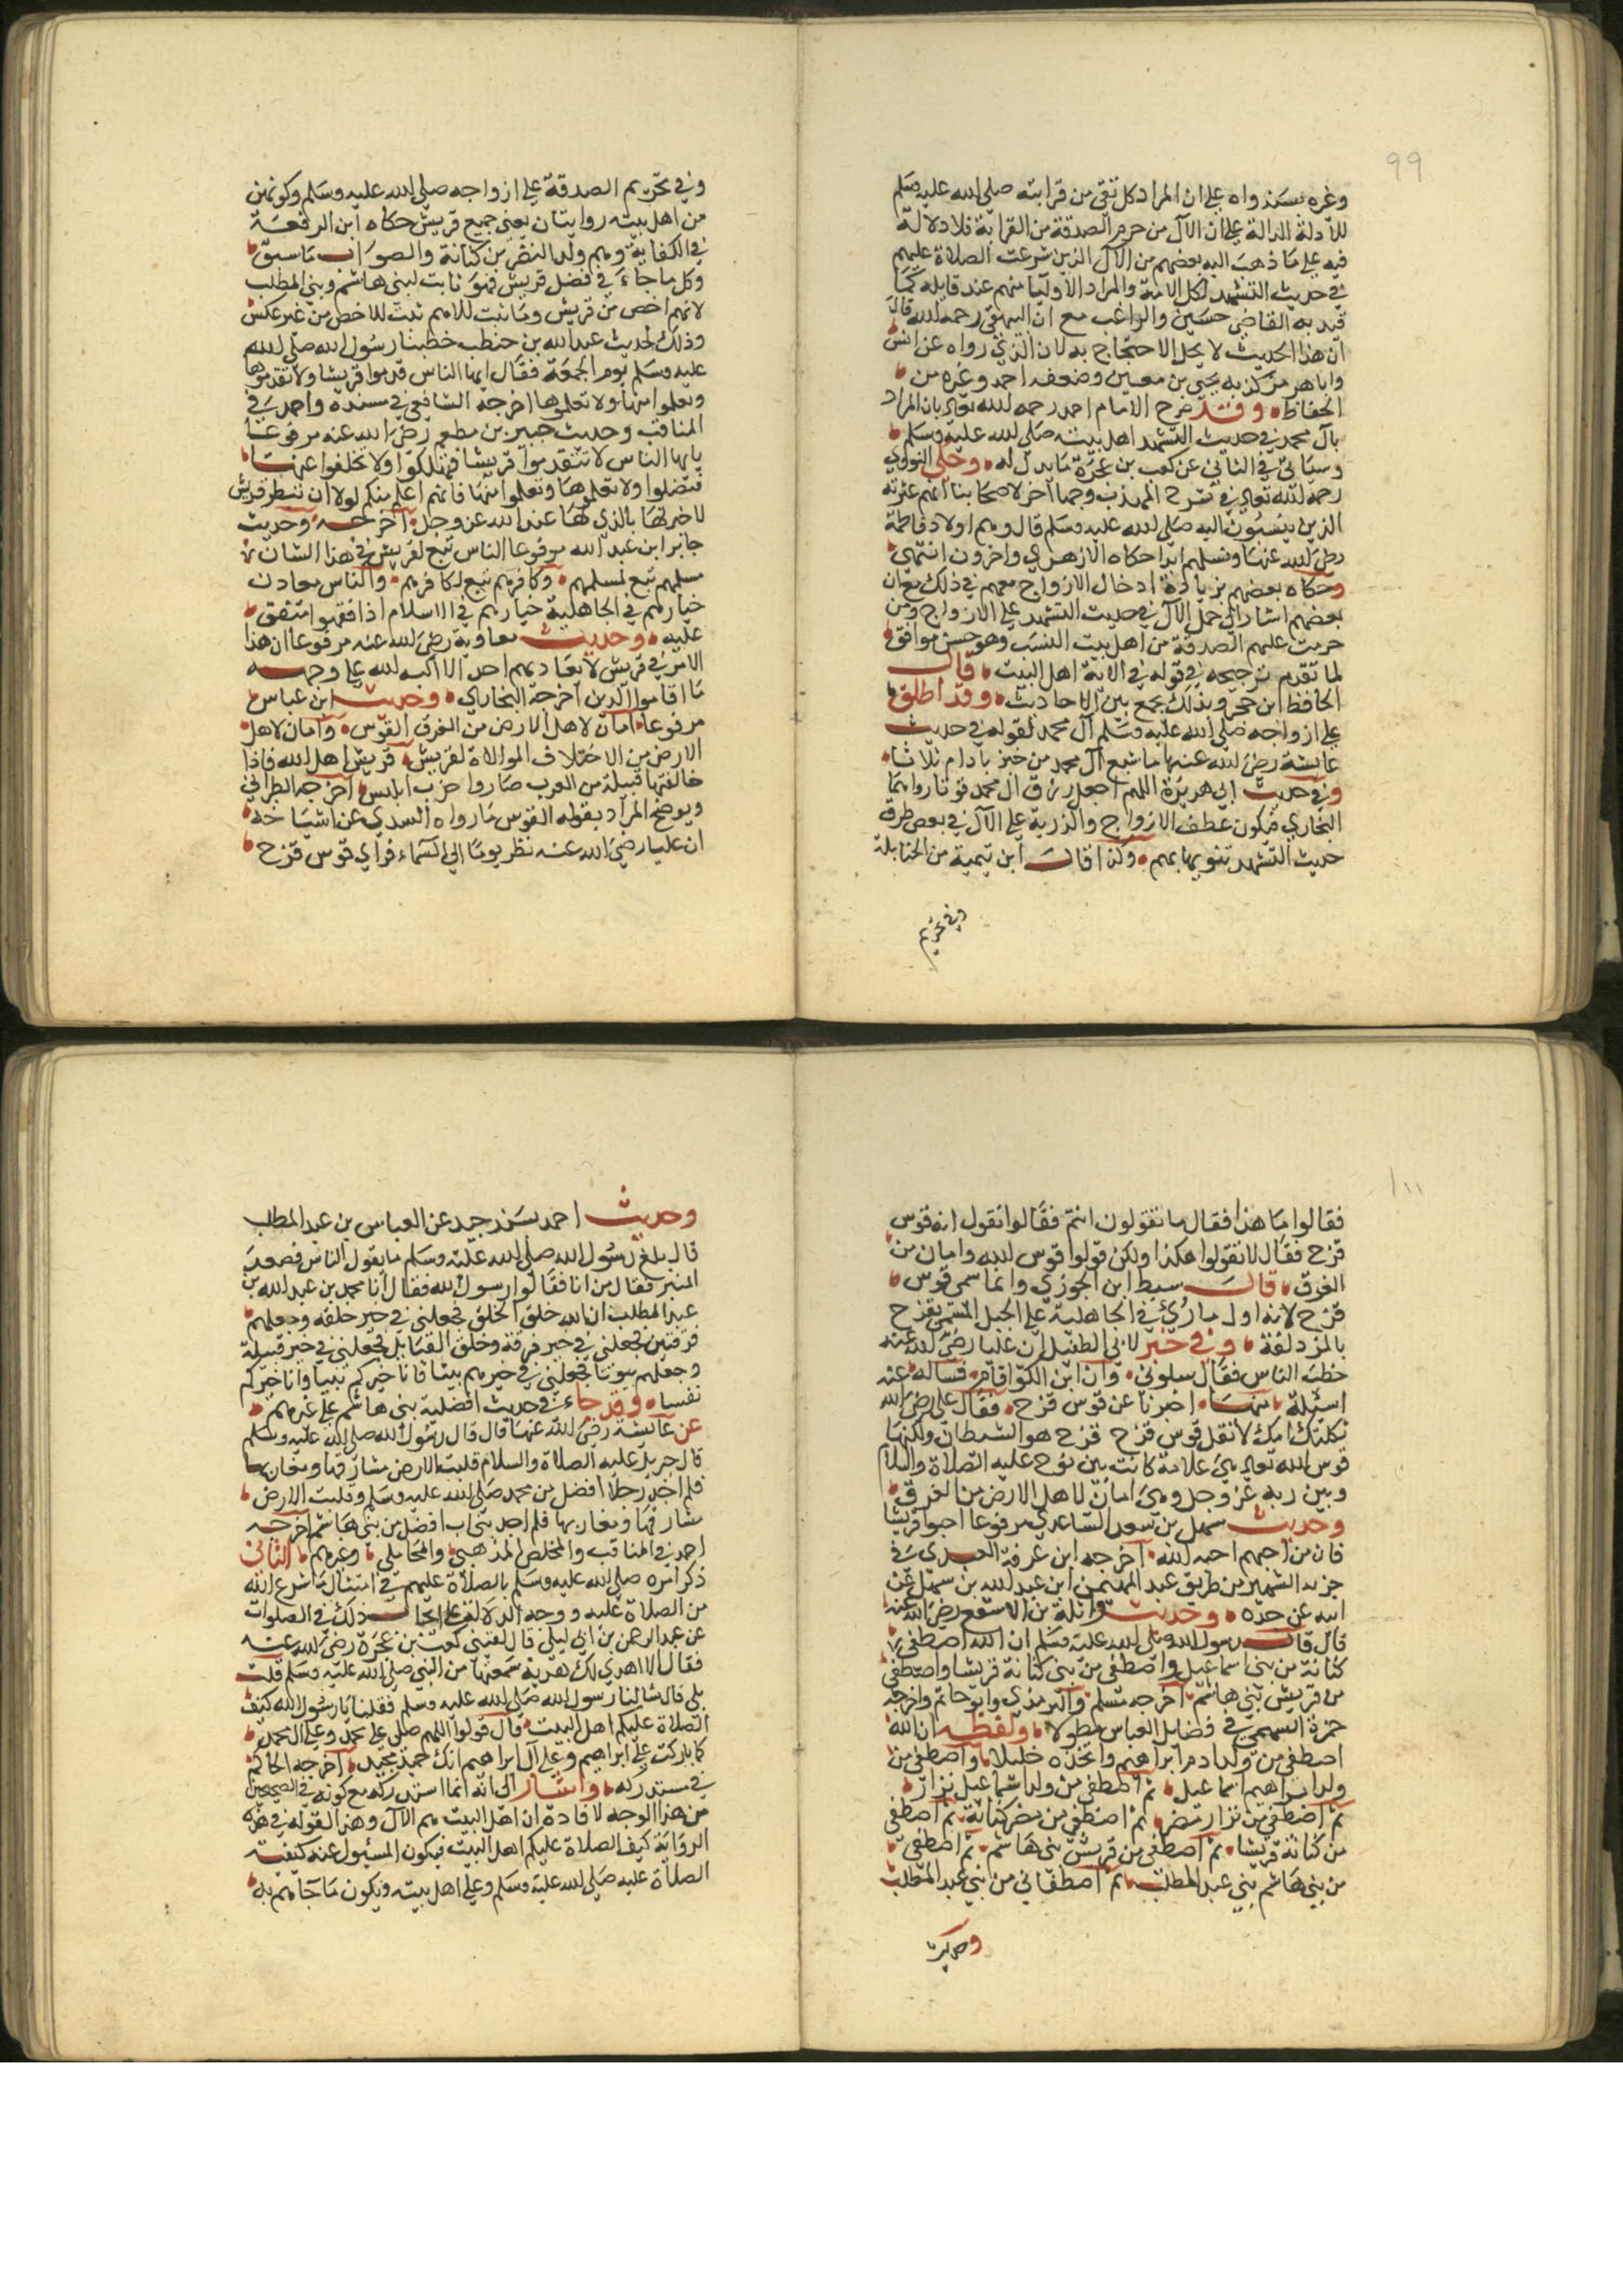 99
وغيره بسند واه على ان المراد كل تقي من قرابته صلى الله عليه وسلم
للأدلة الدالة على ان الآل من حرم الصدقة من القرابة فلا دلالة
فيه على ما ذهب اليه بعضهم من الآل الذين شرعت الصلاة عليهم
في حديث التشهد لكل الامة والمراد الاوليا منهم عند قايله كما
قيد به القاضي حسين والراغب مع ان البيهقي رحمه الله قال
ان هذا الحديث لا يحل الاحتجاج به لان الذي رواه عن انس
وابا هرمز كذبه يحيى بن معين وضعفه احمد وغيره من
الحفاظ وقد صرح الامام احمد رحمه الله تعالى بان المراد
بآل محمد في حديث التشهد اهل بيته صلى الله عليه وسلم
وسيأتي في الثاني عن كعب بن عجرة ما يدل له وحكى النووي
رحمه الله تعالى في شرح المهذب وجها آخر لاصحابنا انهم عترته
الذين ينسبون اليه صلى الله عليه وسلم قال وهم اولاد فاطمة
رضي الله عنها ونسلهم ابدا حكاه الازهري واخرون انتهى
وحكاه بعضهم بزيادة ادخال الازواج معهم في ذلك مع ان
بعضهم اشار الى حمل الآل في حديث التشهد على الازواج ومن
حرمت عليهم الصدقة من اهل بيت النسب وهو حسن موافق
لما تقدم ترجيحه في قوله في الاية اهل البيت قال
الحافظ ابن حجر وبذلك يجمع بين الاحاديث وقد اطلق
على ازواجه صلى الله عليه وسلم آل محمد لقوله في حديث
عايشة رضي الله عنها ما شبع آل محمد من خبز بادام ثلاثا
وفي حديث ابي هريرة اللهم اجعل رزق ال محمد قوتا رواهما
البخاري فيكون عطف الازواج والذرية على الآل في بعض طرق
حديث التشهد تنويها بهم وكذا قال ابن تيمية من الحنابلة
وفي تحريم
وفي تحريم الصدقة على ازواجه صلى الله عليه وسلم وكونهن
من اهل بيته روايتان يعني جميع قريش حكاه ابن الرفعة
في الكفاية وهم ولد النضر بن كنانة والصواب ما سبق
وكل ما جاء في فضل قريش فهو ثابت لبني هاشم وبني المطلب
لانهم اخص من قريش وما ثبت للاعم ثبت للاخص من غير عكس
وذلك لحديث عبد الله بن حنطب خطبنا رسول الله صلى الله
عليه وسلم يوم الجمعة فقال ايها الناس قدموا قريشا ولا تقدموها
وتعلموا منها ولا تعلموها اخرجه الشافعي في مسنده واحمد في
المناقب وحديث جبير بن مطعم رضي الله عنه مرفوعا
يا ايها الناس لا تتقدموا قريشا فتهلكوا ولا تخلفوا عنها
فتضلوا ولا تعلموها وتعلموا منها فانهم اعلم منكم لولا ان تبطر قريش
لاخبرتها بالذي لها عند الله عز وجل اخرجه وحديث
جابر ابن عبد الله مرفوعا الناس تبع لقريش في هذا الشان
مسلمهم تبع لمسلمهم وكافرهم تبع لكافرهم والناس معادن
خيارهم في الجاهلية خيارهم في الاسلام اذا فقهوا متفق
عليه وحديث معاوية رضي الله عنه مرفوعا ان هذا
الامر في قريش لا يعاديهم احد الا اكبه الله على وجهه
ما اقاموا الدين اخرجه البخاري وحديث ابن عباس
مرفوعا امان لاهل الارض من الغرق القوس وامان لاهل
الارض من الاختلاف الموالاة لقريش قريش اهل الله فاذا
خالفتها قبيلة من العرب صاروا حزب ابليس اخرجه الطبراني
ويوضح المراد بقوله القوس ما رواه السدي عن اشياخه
ان عليا رضي الله عنه نظر يوما الى السماء فراى قوس قزح
١٠٠
فقالوا ما هذا فقال ما تقولون انتم فقالوا نقول انه قوس
قزح فقال لا تقولوا هكذا ولكن قولوا قوس الله وامان من
الغرق قال سبط ابن الجوزي وانما سمي قوس
قزح لانه اول ما رؤي في الجاهلية على الجبل المسمى بقزح
بالمزدلفة وفي خبر لابي الطفيل ان عليا رضي الله عنه
خطب الناس فقال سلوني وان ابن الكوا قام فساله عنه
اسئلة منها اخبرنا عن قوس قزح فقال علي رضي الله
ثكلتك امك لا تقل قوس قزح قزح هو الشيطان ولكنها
قوس الله تعالى هي علامة كانت بين نوح عليه الصلاة والسلام
وبين ربه عز وجل وهي امان لاهل الارض من الغرق
وحديث سهل بن سعد الساعدي مرفوعا احبوا قريشا
فان من احبهم احبه الله اخرجه ابن عرفة العبدي في
جزئه الشهير من طريق عبد المهيمن ابن عبد الله بن سهل عن
ابيه عن جده وحديث واثلة بن الاسقع رضي الله عنه
قال قال رسول الله صلى الله عليه وسلم ان الله اصطفى
كنانة من بني اسماعيل واصطفى من بني كنانة قريشا واصطفى
من قريش بني هاشم اخرجه مسلم والترمذي وابو حاتم واخرجه
حمزة السهمي في فضايل العباس مطولا ولفظه ان الله
اصطفى من ولد ادم ابراهيم واتخذه خليلا واصطفى من
ولد ابراهيم اسماعيل ثم اصطفى من ولد اسماعيل نزار
ثم اصطفى من نزار مضر ثم اصطفى من مضر كنانة ثم اصطفى
من كنانة قريشا ثم اصطفى من قريش بني هاشم ثم اصطفى
من بني هاشم بني عبد المطلب ثم اصطفاني من بني عبد المطلب
وحديث
وحديث احمد بسند جيد عن العباس بن عبد المطلب
قال بلغ رسول الله صلى الله عليه وسلم ما يقول الناس فصعد
المنبر فقال من انا فقالوا رسول الله فقال انا محمد بن عبد الله بن
عبد المطلب ان الله خلق الخلق فجعلني في خير خلقه وجعلهم
فرقتين فجعلني في خير فرقة وخلق القبايل فجعلني في خير قبيلة
وجعلهم بيوتا فجعلني في خيرهم بيتا فانا خيركم بيتا وانا خيركم
نفسا وقد جاء في حديث افضلية بني هاشم على غيرهم
عن عايشة رضي الله عنها قال قال رسول الله صلى الله عليه وسلم
قال جبريل عليه الصلاة والسلام قلبت الارض مشارقها ومغاربها
فلم اجد رجلا افضل من محمد صلى الله عليه وسلم وقلبت الارض
مشارقها ومغاربها فلم اجد بني اب افضل من بني هاشم اخرجه
احمد في المناقب والمخلص الذهبي والمحاملي وغيرهم الثاني
ذكر امره صلى الله عليه وسلم بالصلاة عليهم في امتثال ما شرع الله
من الصلاة عليه ووجه الدلالة على ايجاب ذلك في الصلوات
عن عبد الرحمن بن ابي ليلى قال لقيني كعب بن عجرة رضي الله عنه
فقال الا اهدي لك هدية سمعتها من النبي صلى الله عليه وسلم قلت
بلى قال سالنا رسول الله صلى الله عليه وسلم فقلنا يا رسول الله كيف
الصلاة عليكم اهل البيت قال قولوا اللهم صل على محمد وعلى ال محمد
كما باركت على ابراهيم وعلى آل ابراهيم انك حميد مجيد اخرجه الحاكم
في مستدركه واشار الى انه انما استدركه مع كونه في الصحيحين
من هذا الوجه لافادة ان اهل البيت هم الآل وهذا لقوله في هذه
الرواية كيف الصلاة عليكم اهل البيت فيكون المسئول عنه كيفية
الصلاة عليه صلى الله عليه وسلم وعلى اهل بيته ويكون ما جابهم به